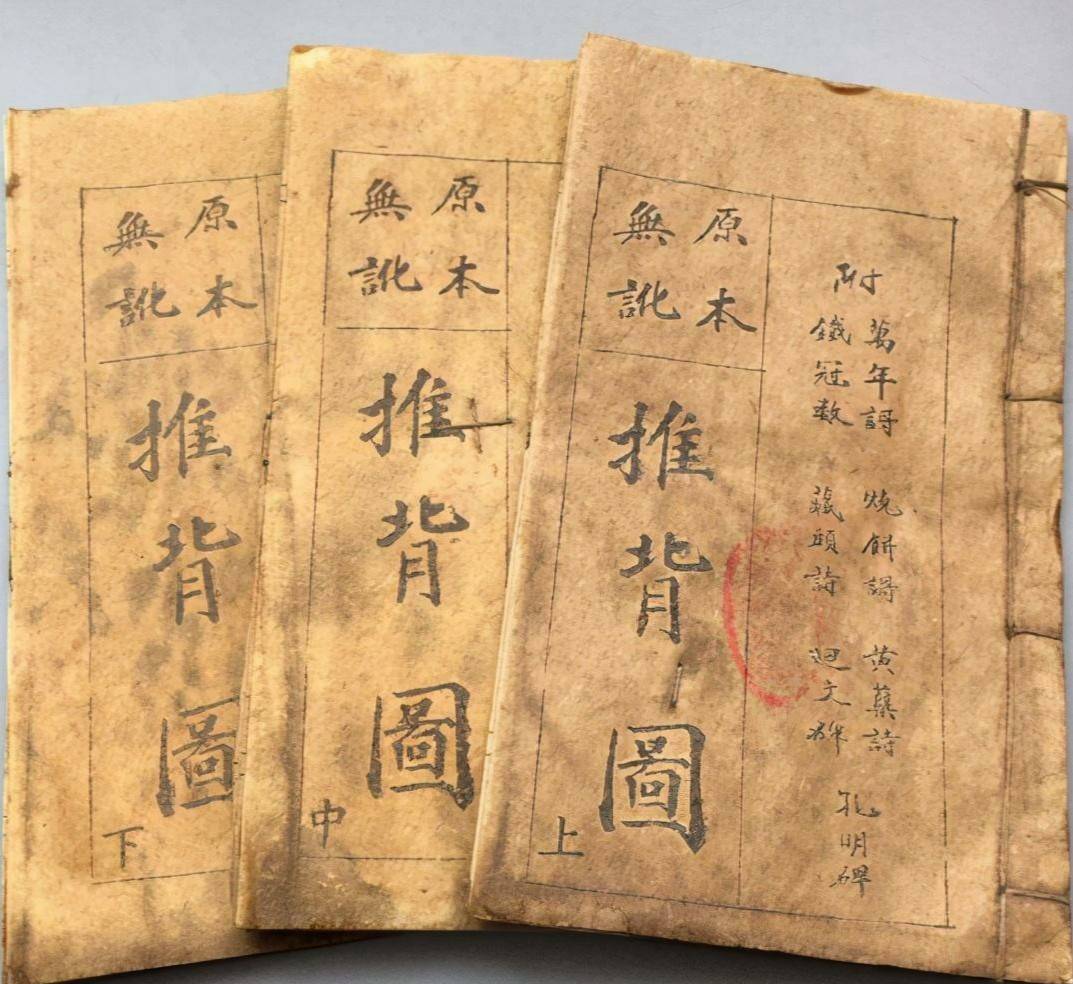 附
萬年謌 燒餅謌 黄蘗詩
鐵冠數 藏頭詩 迴文碑
孔明碑
原本
無訛
推背圖
上
原本
無訛
推背圖
中
原本
無訛
推背圖
下